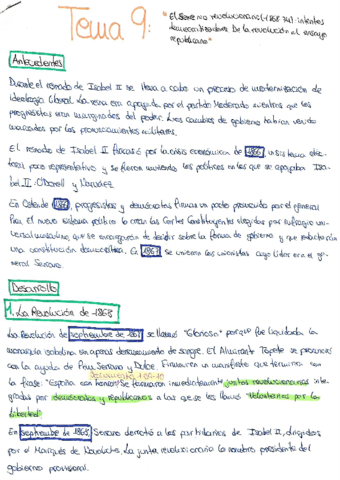 Tema 9:
"El Sexenio revolucionario (1868-74): intentos
democratizadores. De la revolución al ensayo
republicano"
Antecedentes
Durante el reinado de Isabel II se lleva a cabo un proceso de modernización de
ideología liberal. La reina era apoyada por el partido Moderado mientras que los
progresistas eran marginados del poder. Los cambios de gobierno habían venido
marcados por los pronunciamientos militares.
El reinado de Isabel II fracasó por la crisis económica de 1866, un sistema elec-
toral poco representativo y se fueron muriendo los políticos en los que se apoyaba Isa-
bel II: O'Donell y Narváez
En Ostende 1866, progresistas y demócratas firman un pacto promovido por el general
Prim. El nuevo sistema político lo crean las Cortes Constituyentes elegidas por sufragio uni-
versal masculino, que se encargarían de decidir sobre la forma de gobierno y que redactarían
una constitución democrática. En 1867 se unieron los unionistas cuyo líder era el ge-
neral Serrano.
Desarrollo
1. La Revolución de 1868
La Revolución de septiembre de 1868 se llamó "Gloriosa" porque fue liquidada la
monarquía isabelina sin apenas derramamiento de sangre. El Almirante Topete se pronunció
con la ayuda de Prim, Serrano y Dulce. Firmaron un manifiesto que termina con
la frase: "España con honra". Se formaron inmediatamente juntas revolucionarias inte-
gradas por demócratas y republicanos a las que se les llamó "Voluntarios por la
libertad"
En septiembre de 1868, Serrano derrotó a los partidarios de Isabel II, dirigidos
por el Marqués de Novaliches. La junta revolucionaria lo nombra presidente del
gobierno provisional.